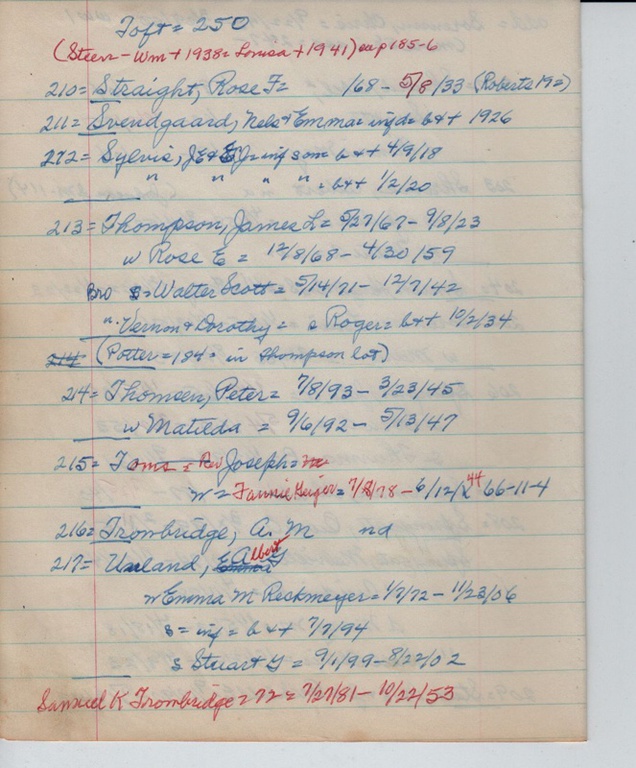 Toft = 250
(Steen - Wm + 1938 = Louisa + 1941) on p 185-6
210 = Straight, Rose F = /68 - 5/8/33 (Roberts 192)
211 = Svendgaard, Nels + Emma = inf d = b + t 1926
212 = Sylvis, J E + E J = inf son = b + t 4/9/18
" " " " = b + t 1/2/20
213 = Thompson, James L = 5/27/67 - 9/8/23
w Rose E = 12/8/68 - 4/30/59
Bro = Walter Scott = 5/14/71 - 12/7/42
" Vernon + Dorothy = s Roger = b + t 10/2/34
214 (Potter = 184 = in Thompson lot)
214 = Thomsen, Peter = 7/8/93 - 3/23/45
w Matilda = 9/6/92 - 5/13/47
215 = Toms = Rev Joseph =
w = Fannie Geiger = 7/8/78 - 6/12/44 66-11-4
216 = Trombridge, A. M nd
217 = Unland, Albert G
w Emma M Reckmeyer = 1/7/72 - 11/23/06
s = inf = b + t 7/7/94
s Stuart G = 9/1/99 - 8/22/02
Samuel K Trombridge = 72 = 7/27/81 - 10/22/53